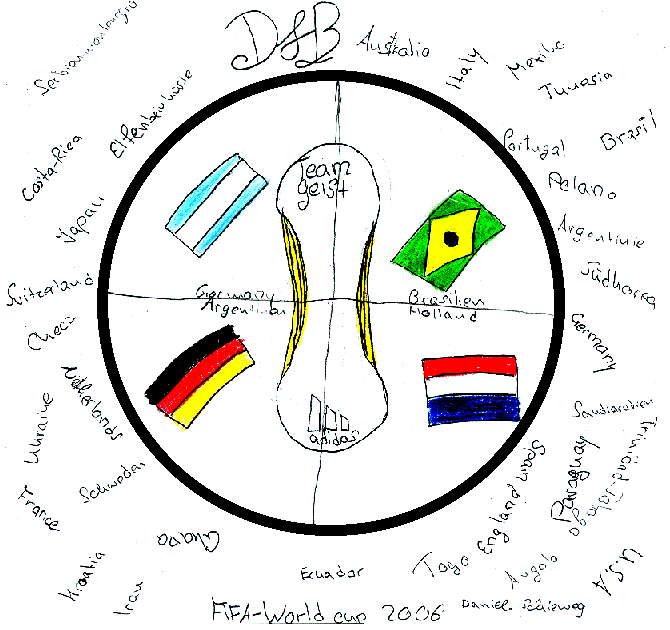 DSB
Australia
Italy
Mexiko
Tunesia
Portugal
Brasil
Polano
Argentinie
Südkorea
Germany
Saudiarabien
Trinidad-Tobago
Paraguay
U.S.A
Spain
England
Angola
Togo
Ecuador
Ghana
Iran
Kroatia
France
Schweden
Ukraine
Netherlands
Chech
Switzerland
Japan
Costa-Rica
Elfenbeinküste
Serbienmontenegro
Team
geist
Germany
Argentinien
Brasilien
Holland
adidas
FIFA-World cup 2006
Daniel Schieweg